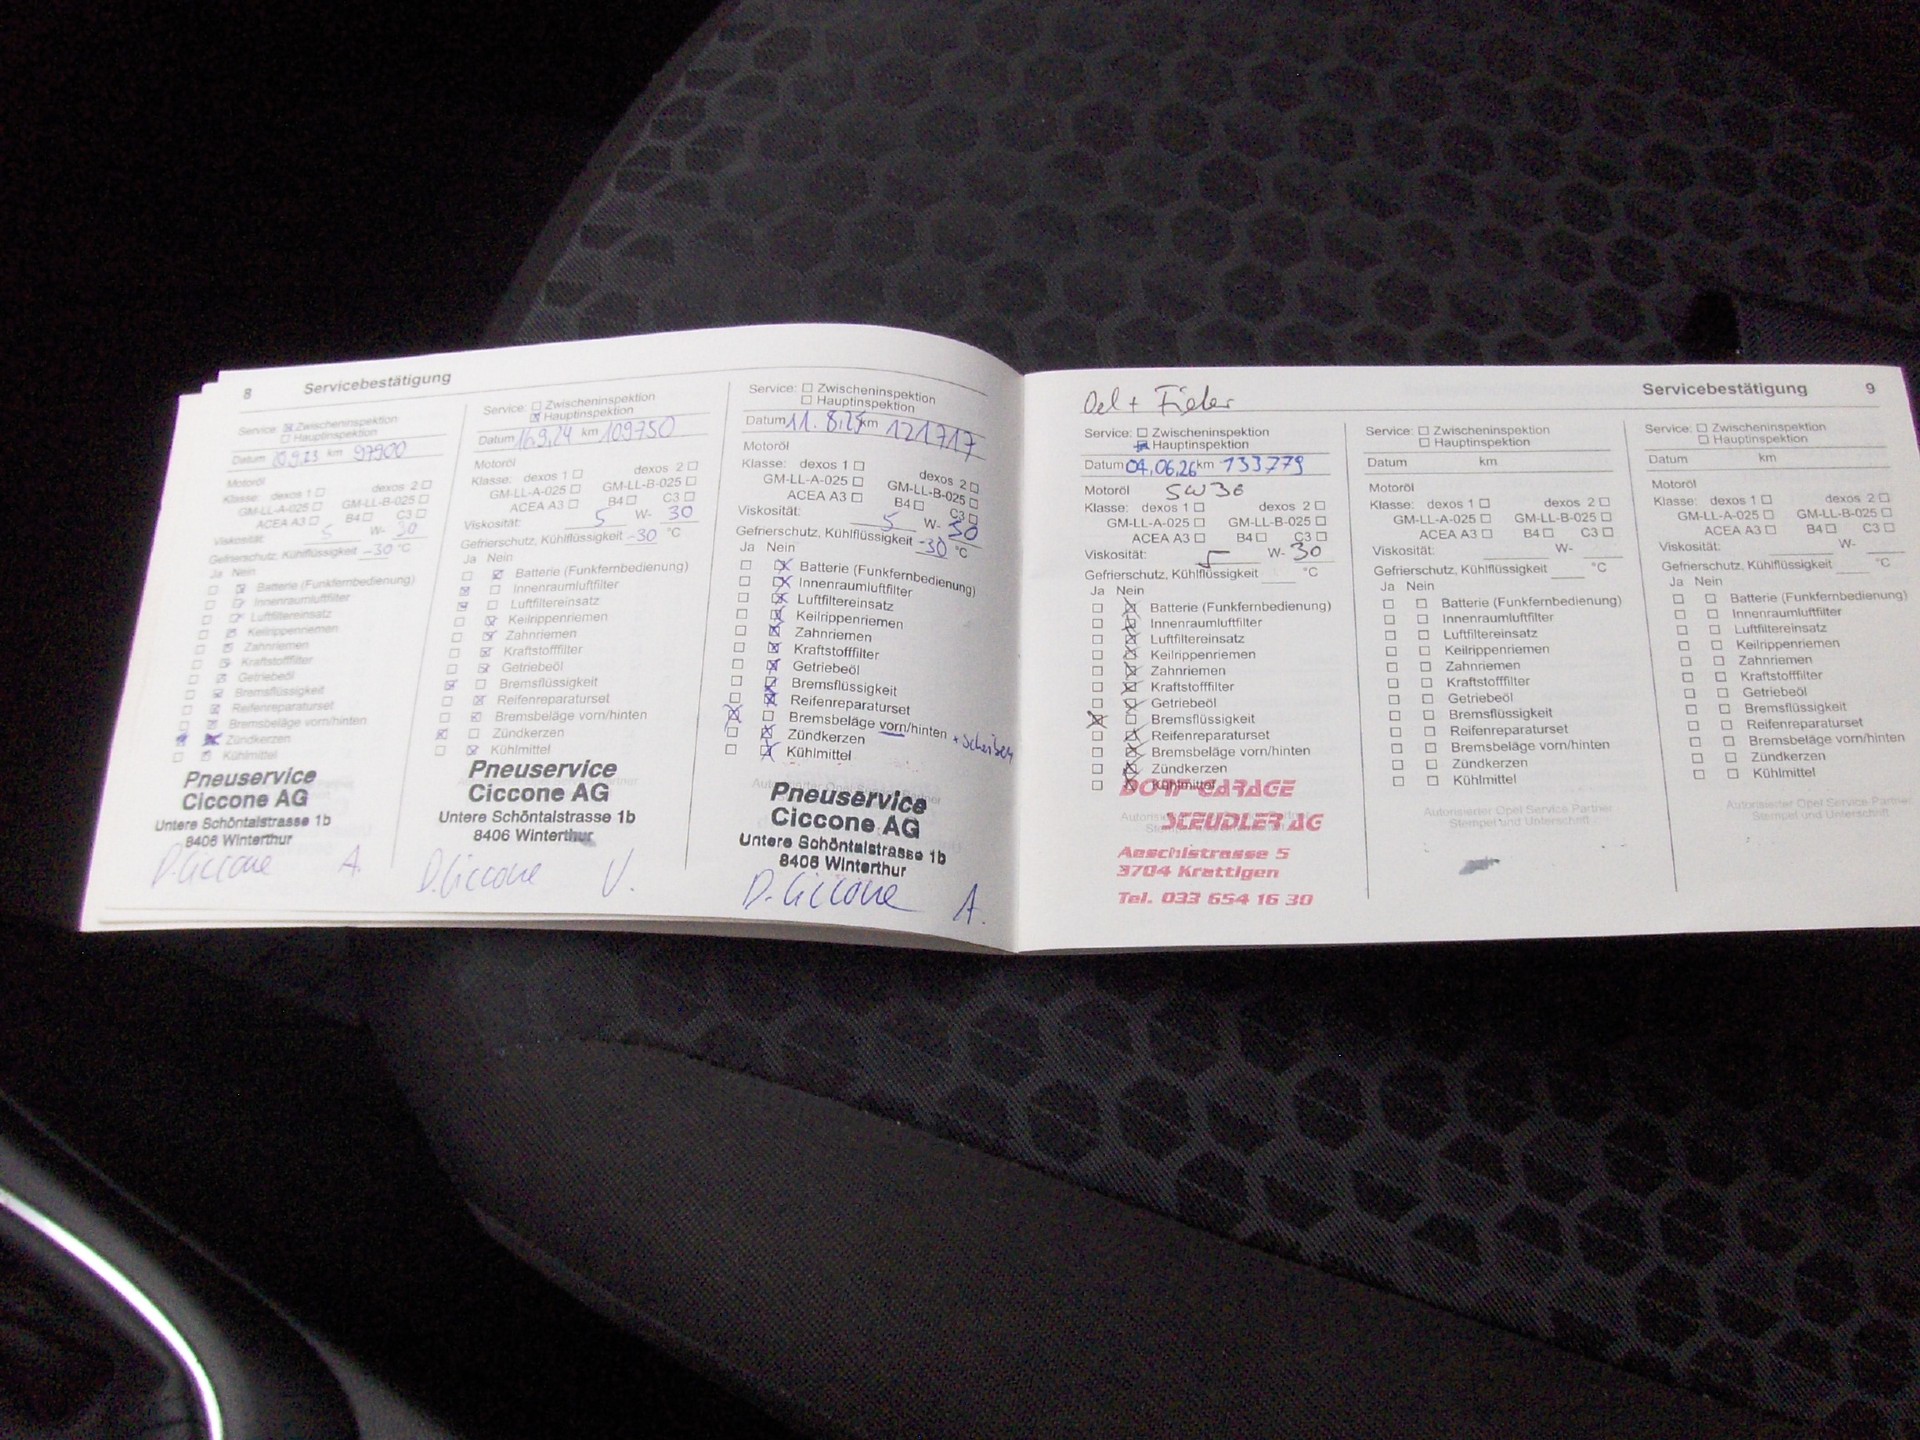 8 Servicebestätigung
Service: Zwischeninspektion
Hauptinspektion
Datum 20.9.23 km 97900
Motoröl
Klasse: dexos 1 dexos 2
GM-LL-A-025 GM-LL-B-025
ACEA A3 B4 C3
Viskosität: 5 W- 30
Gefrierschutz, Kühlflüssigkeit -30 °C
Ja Nein
Batterie (Funkfernbedienung)
Innenraumluftfilter
Luftfiltereinsatz
Keilrippenriemen
Zahnriemen
Kraftstofffilter
Getriebeöl
Bremsflüssigkeit
Reifenreparaturset
Bremsbeläge vorn/hinten
Zündkerzen
Kühlmittel
Pneuservice
Ciccone AG
Untere Schöntalstrasse 1b
8406 Winterthur
D. Ciccone A.
Service: Zwischeninspektion
Hauptinspektion
Datum 16.9.24 km 109750
Motoröl
Klasse: dexos 1 dexos 2
GM-LL-A-025 GM-LL-B-025
ACEA A3 B4 C3
Viskosität: 5 W- 30
Gefrierschutz, Kühlflüssigkeit -30 °C
Ja Nein
Batterie (Funkfernbedienung)
Innenraumluftfilter
Luftfiltereinsatz
Keilrippenriemen
Zahnriemen
Kraftstofffilter
Getriebeöl
Bremsflüssigkeit
Reifenreparaturset
Bremsbeläge vorn/hinten
Zündkerzen
Kühlmittel
Pneuservice
Ciccone AG
Untere Schöntalstrasse 1b
8406 Winterthur
D. Ciccone V.
Service: Zwischeninspektion
Hauptinspektion
Datum 11.8.25 km 121717
Motoröl
Klasse: dexos 1 dexos 2
GM-LL-A-025 GM-LL-B-025
ACEA A3 B4 C3
Viskosität: 5 W- 30
Gefrierschutz, Kühlflüssigkeit -30 °C
Ja Nein
Batterie (Funkfernbedienung)
Innenraumluftfilter
Luftfiltereinsatz
Keilrippenriemen
Zahnriemen
Kraftstofffilter
Getriebeöl
Bremsflüssigkeit
Reifenreparaturset
Bremsbeläge vorn/hinten + Scheiben
Zündkerzen
Kühlmittel
Pneuservice
Ciccone AG
Untere Schöntalstrasse 1b
8406 Winterthur
D. Ciccone A.
Servicebestätigung 9
Oel +
Service: Zwischeninspektion
Hauptinspektion
Datum 04.06.26 km 133779
Motoröl 5W30
Klasse: dexos 1 dexos 2
GM-LL-A-025 GM-LL-B-025
ACEA A3 B4 C3
Viskosität: 5 W- 30
Gefrierschutz, Kühlflüssigkeit °C
Ja Nein
Batterie (Funkfernbedienung)
Innenraumluftfilter
Luftfiltereinsatz
Keilrippenriemen
Zahnriemen
Kraftstofffilter
Getriebeöl
Bremsflüssigkeit
Reifenreparaturset
Bremsbeläge vorn/hinten
Zündkerzen
Kühlmittel
DORF GARAGE
AG
Aeschistrasse 5
3704 Krattigen
Tel. 033 654 16 30
Service: Zwischeninspektion
Hauptinspektion
Datum km
Motoröl
Klasse: dexos 1 dexos 2
GM-LL-A-025 GM-LL-B-025
ACEA A3 B4 C3
Viskosität: W-
Gefrierschutz, Kühlflüssigkeit °C
Ja Nein
Batterie (Funkfernbedienung)
Innenraumluftfilter
Luftfiltereinsatz
Keilrippenriemen
Zahnriemen
Kraftstofffilter
Getriebeöl
Bremsflüssigkeit
Reifenreparaturset
Bremsbeläge vorn/hinten
Zündkerzen
Kühlmittel
Autorisierter Opel Service Partner
Stempel und Unterschrift
Service: Zwischeninspektion
Hauptinspektion
Datum km
Motoröl
Klasse: dexos 1 dexos 2
GM-LL-A-025 GM-LL-B-025
ACEA A3 B4 C3
Viskosität: W-
Gefrierschutz, Kühlflüssigkeit °C
Ja Nein
Batterie (Funkfernbedienung)
Innenraumluftfilter
Luftfiltereinsatz
Keilrippenriemen
Zahnriemen
Kraftstofffilter
Getriebeöl
Bremsflüssigkeit
Reifenreparaturset
Bremsbeläge vorn/hinten
Zündkerzen
Kühlmittel
Autorisierter Opel Service Partner
Stempel und Unterschrift